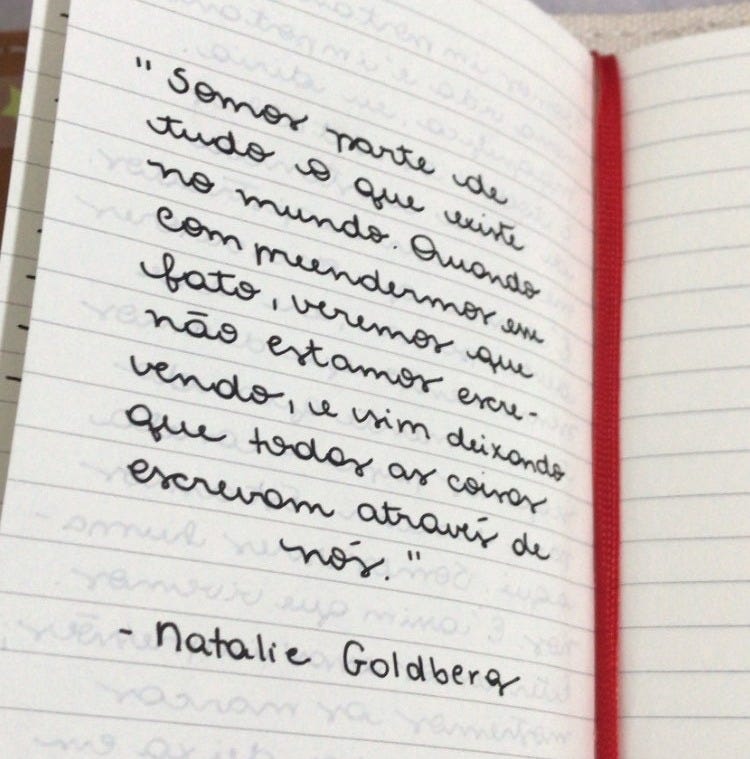 "Somos parte de
tudo o que existe
no mundo. Quando
compreendermos esse
fato, veremos que
não estamos escre-
vendo, e sim deixando
que todas as coisas
escrevam através de
nós."
- Natalie Goldberg